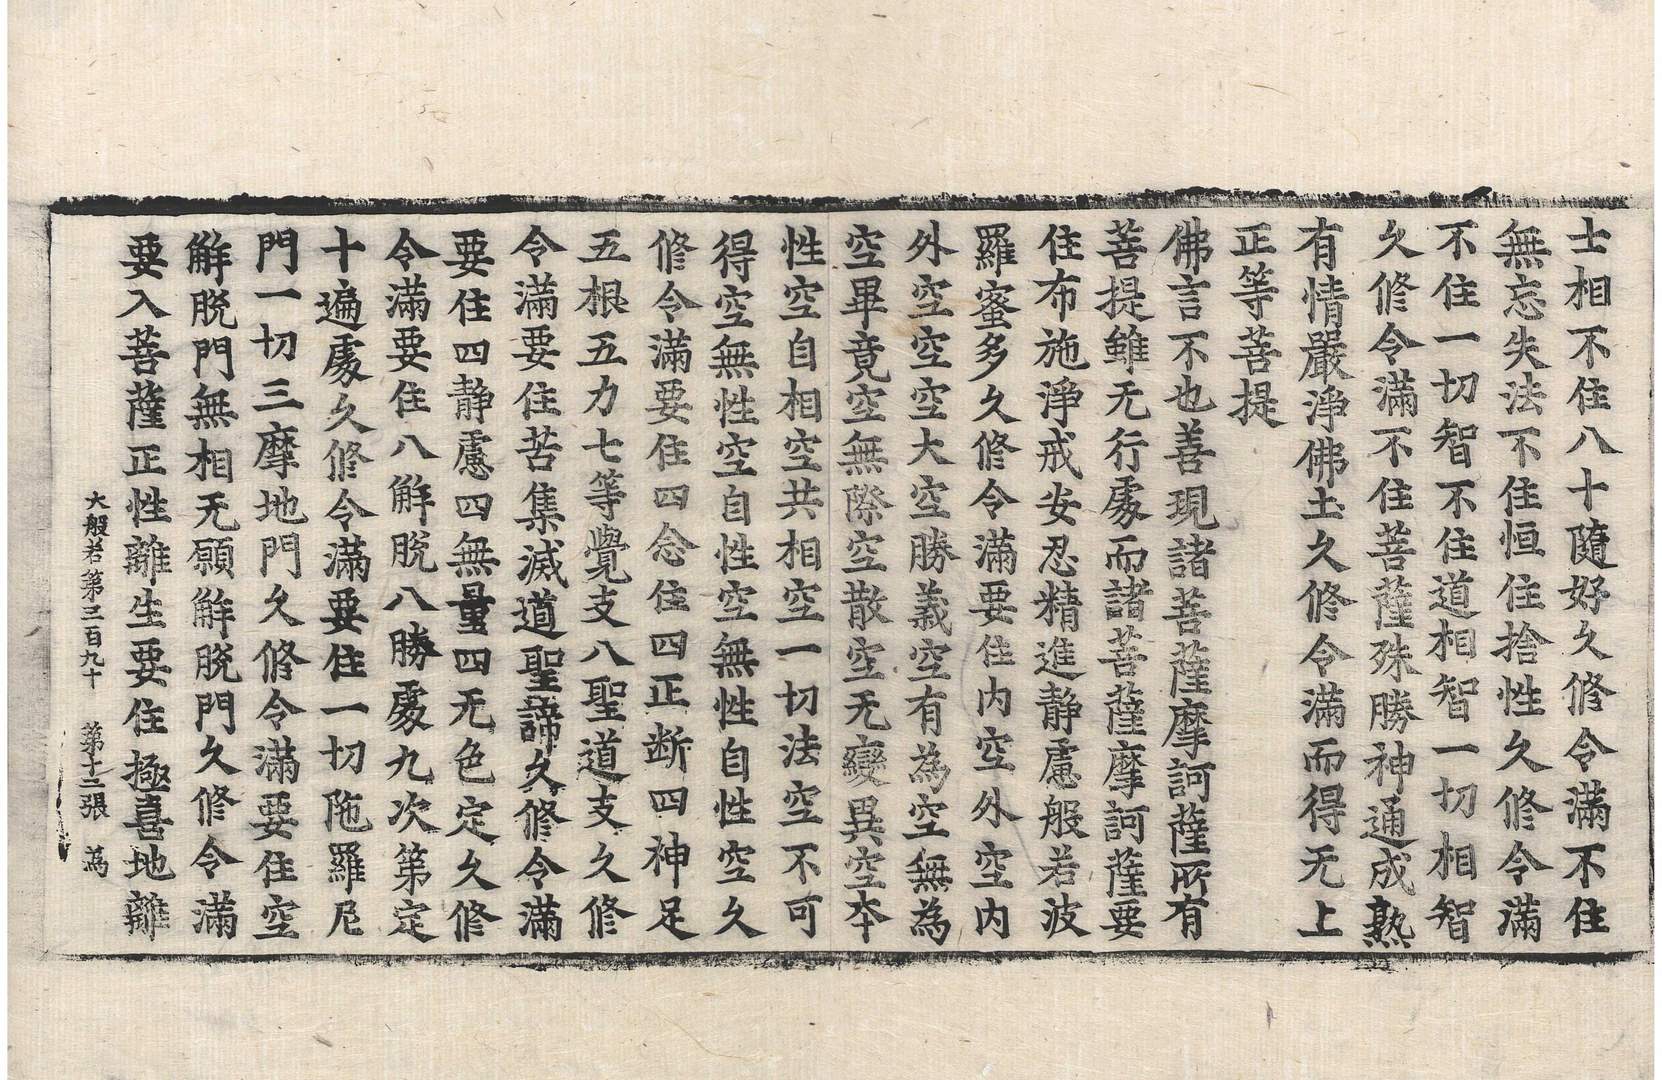 士相不住八十隨好久修令滿不住
無忘失法不住恒住捨性久修令滿
不住一切智不住道相智一切相智
久修令滿不住菩薩殊勝神通成熟
有情嚴淨佛土久修令滿而得无上
正等菩提
佛言不也善現諸菩薩摩訶薩所有
菩提雖无行處而諸菩薩摩訶薩要
住布施淨戒安忍精進靜慮般若波
羅蜜多久修令滿要住內空外空內
外空空空大空勝義空有為空無為
空畢竟空無際空散空无變異空本
性空自相空共相空一切法空不可
得空無性空自性空無性自性空久
修令滿要住四念住四正断四神足
五根五力七等覺支八聖道支久修
令滿要住苦集滅道聖諦久修令滿
要住四靜慮四無量四无色定久修
令滿要住八解脫八勝處九次第定
十遍處久修令滿要住一切陁羅尼
門一切三摩地門久修令滿要住空
解脫門無相无願解脫門久修令滿
要入菩薩正性離生要住極喜地離
大般若第三百九十 第十二張 為